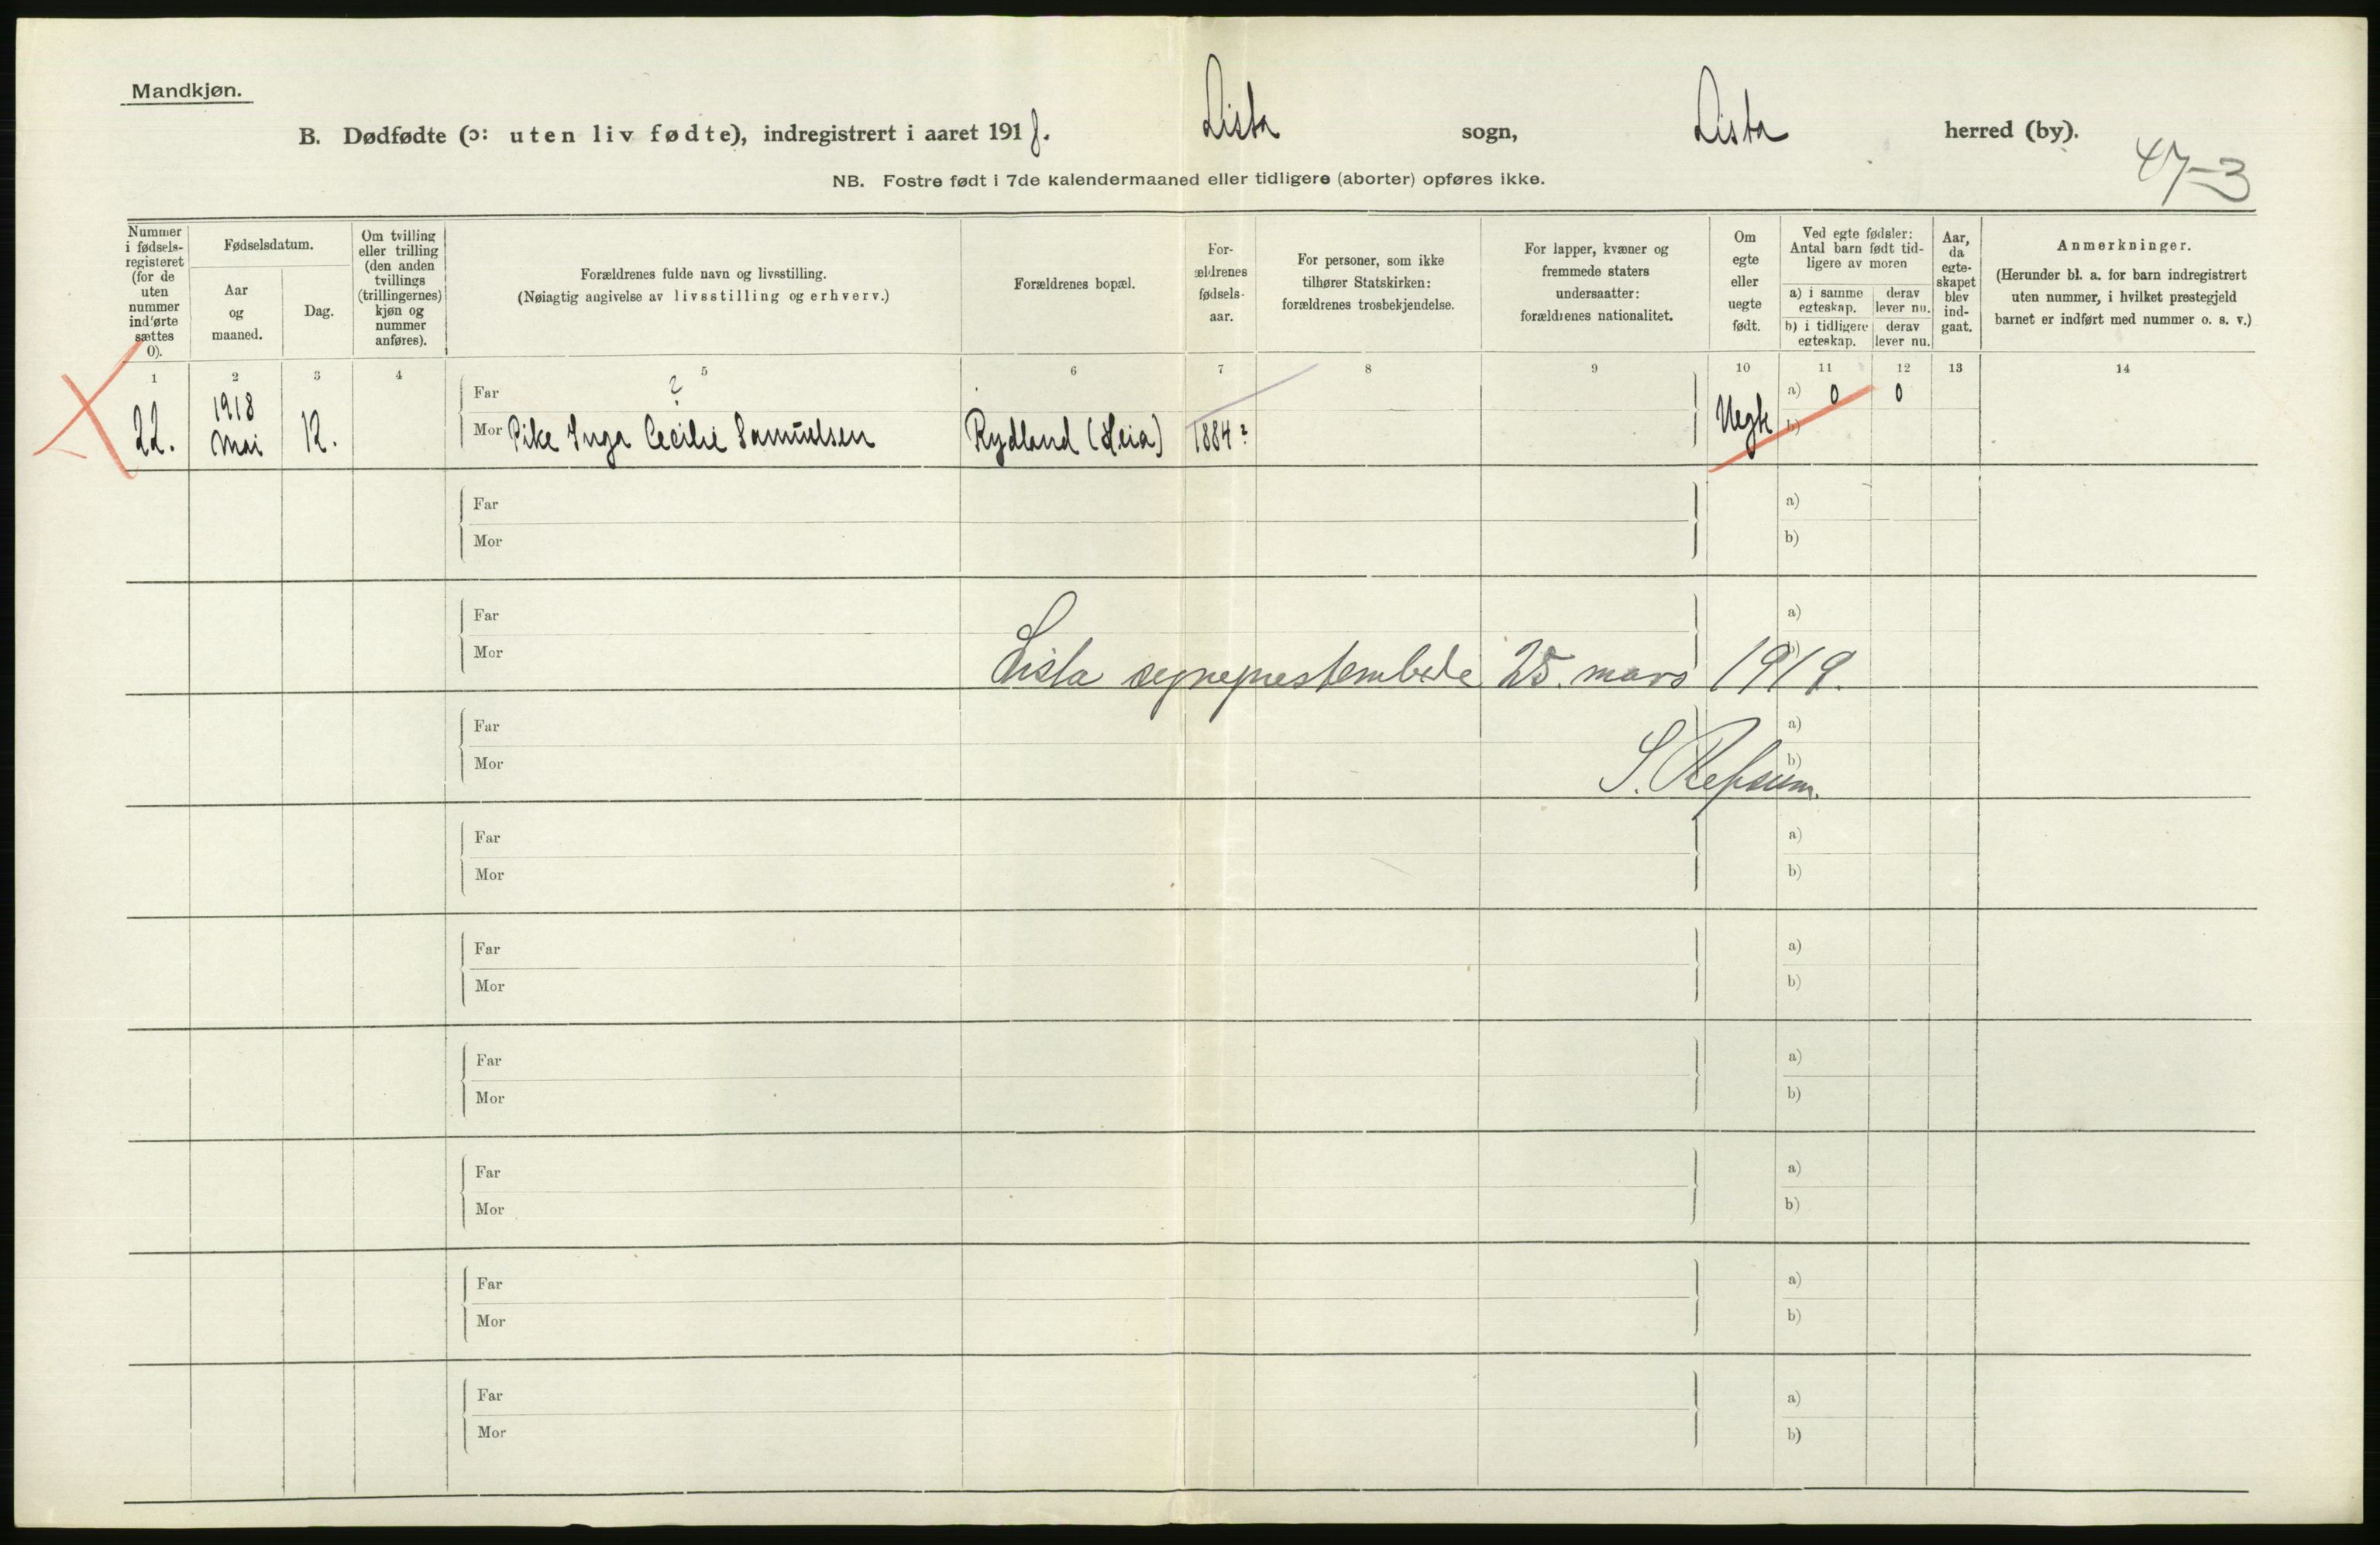 Mandkjøn.
B. Dødfødte (ɔ: uten liv fødte), indregistrert i aaret 1918. Lista sogn, Lista herred (by).
47-3
NB. Fostre født i 7de kalendermaaned eller tidligere (aborter) opføres ikke.
Nummer i fødsels- registeret (for de uten nummer indførte sættes 0).
Fødselsdatum.
Aar og maaned.
Dag.
Om tvilling eller trilling (den anden tvillings (trillingernes) kjøn og nummer anføres).
Forældrenes fulde navn og livsstilling.
(Nøiagtig angivelse av livsstilling og erhverv.)
Forældrenes bopæl.
For- ældrenes fødsels- aar.
For personer, som ikke tilhører Statskirken: forældrenes trosbekjendelse.
For lapper, kvæner og fremmede staters undersaatter: forældrenes nationalitet.
Om egte eller uegte født.
Ved egte fødsler: Antal barn født tid- ligere av moren
a) i samme egteskap.
derav lever nu.
b) i tidligere egteskap.
derav lever nu.
Aar, da egte- skapet blev ind- gaat.
Anmerkninger.
(Herunder bl. a. for barn indregistrert uten nummer, i hvilket prestegjeld barnet er indført med nummer o. s. v.)
1 2 3 4 5 6 7 8 9 10 11 12 13 14
Far ? a) 0 0
22. 1918 Mai 12. Mor Pike Inga Cecilie Samuelsen Rydland (Heia) 1884? Uegte b)
Far a)
Mor b)
Far a)
Mor b)
Lista sogneprestembede 25. mars 1919.
Far a)
Mor b)
S. Refsum.
Far a)
Mor b)
Far a)
Mor b)
Far a)
Mor b)
Far a)
Mor b)
Far a)
Mor b)
Far a)
Mor b)